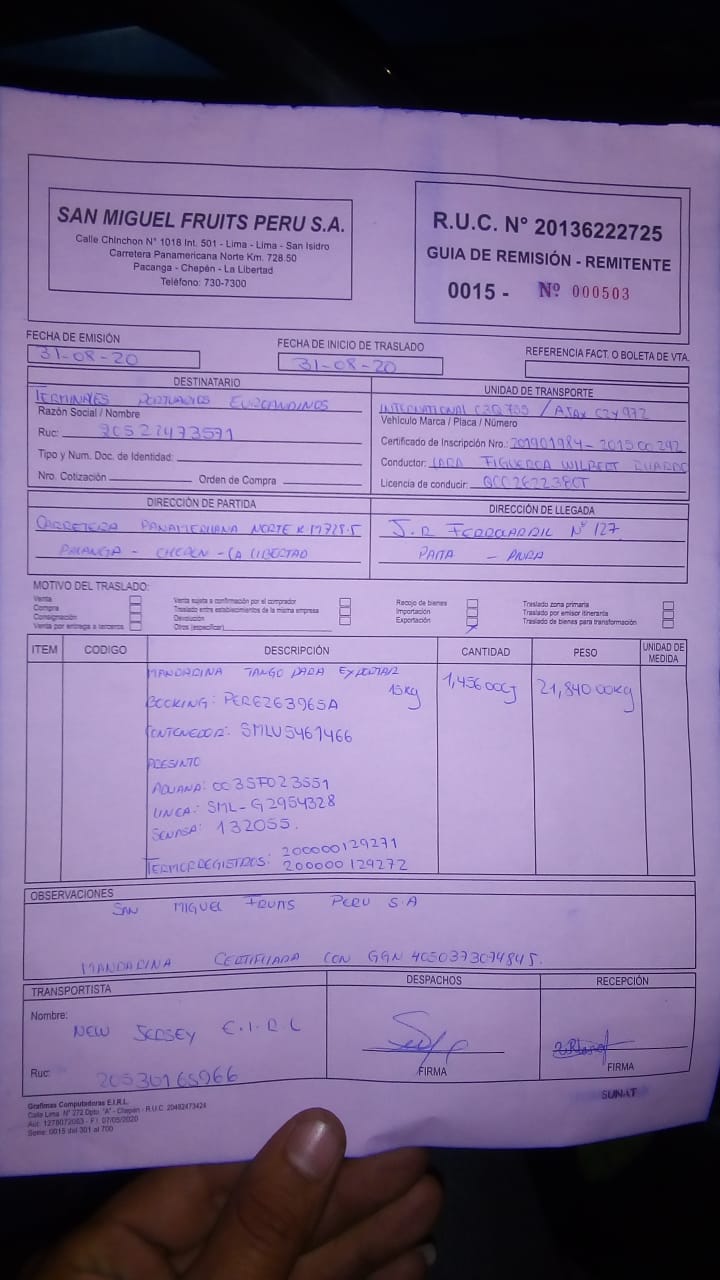 SAN MIGUEL FRUITS PERU S.A.
Calle Chinchon N° 1018 Int. 501 - Lima - Lima - San Isidro
Carretera Panamericana Norte Km. 728.50
Pacanga - Chepén - La Libertad
Teléfono: 730-7300
R.U.C. N° 20136222725
GUIA DE REMISIÓN - REMITENTE
0015 - Nº 000503
FECHA DE EMISIÓN
31-08-20
FECHA DE INICIO DE TRASLADO
31-08-20
REFERENCIA FACT. O BOLETA DE VTA.
DESTINATARIO
TERMINALES PORTUARIOS EUROANDINOS
Razón Social / Nombre
Ruc: 20522473571
Tipo y Num. Doc. de Identidad:
Nro. Cotización Orden de Compra
UNIDAD DE TRANSPORTE
INTERNATIONAL / AJAX C2Y972
Vehículo Marca / Placa / Número
Certificado de Inscripción Nro.:
Conductor: LARA FIGUEROA WILBERT
Licencia de conducir:
DIRECCIÓN DE PARTIDA
CARRETERA PANAMERIANA NORTE KM728.5
PACANGA - CHEPEN - LA LIBERTAD
DIRECCIÓN DE LLEGADA
J.R FERROCARRIL N° 127
PAITA - PIURA
MOTIVO DEL TRASLADO:
Venta
Compra
Consignación
Venta por entrega a terceros
Venta sujeta a confirmación por el comprador
Traslado entre establecimientos de la misma empresa
Devolución
Otros (especificar)
Recojo de bienes
Importación
Exportación
Traslado zona primaria
Traslado por emisor itinerante
Traslado de bienes para transformación
ITEM CODIGO DESCRIPCIÓN CANTIDAD PESO UNIDAD DE MEDIDA
MANDARINA TANGO PARA EXPORTAR
15kg 1,456 00CJ 21,840 00KG
BOOKING: PERE263965A
CONTENEDOR: SMLU5461466
PRESINTO
ADUANA: 0035F023551
LINEA: SML-G2954328
SENASA: 132055.
TERMOREGISTROS: 200000129271
200000129272
OBSERVACIONES
SAN MIGUEL FRUITS PERU S.A
MANDARINA CERTIFICADA CON GGN 4050373074845.
TRANSPORTISTA
Nombre:
NEW JERSEY E.I.R.L
Ruc: 20530165966
DESPACHOS
FIRMA
RECEPCIÓN
FIRMA
Grafimas Computadoras E.I.R.L.
Calle Lima N° 272 Dpto. "A" - Chepén - R.U.C. 20482473424
Aut: 1278072063 - F.I. 07/05/2020
Serie: 0015 del 301 al 700
SUNAT